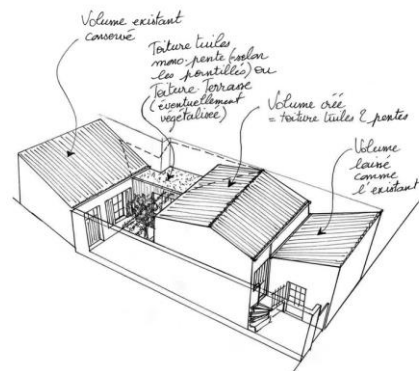 Volume existant
conservé
Toiture tuiles
mono-pente (selon
les pointillés) ou
Toiture Terrasse
(éventuellement
végétalisée)
Volume créé
= toiture tuiles 2 pentes
Volume
laissé
comme
l'existant